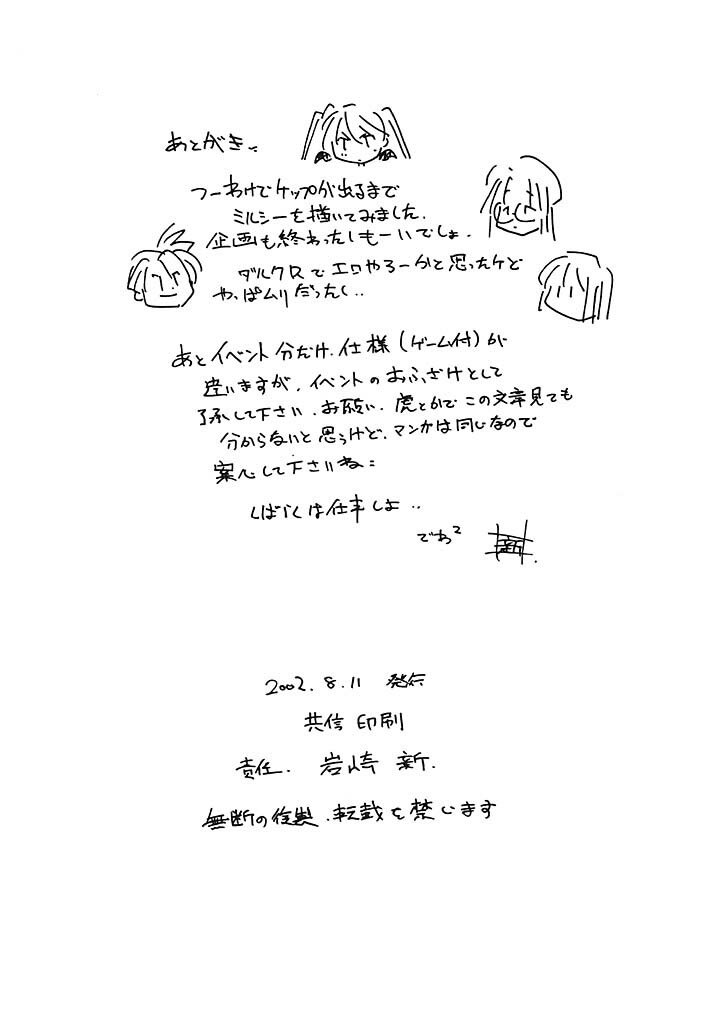 あとがき
つーわけでケップが出るまで
ミルシーを描いてみました.
企画も終わったしもーいでしょ.
ダルクロでエロやろーかと思ったケど
やっぱムリだったし..
あとイベント分だけ.仕様(ゲーム付)が
違いますが、イベントのおふざけとして
了承して下さい.お願い.虎とかでこの文章見ても
分からないと思うけど.マンガは同じなので
案心して下さいね
しばらくは仕事しよ..
でわ2
新
2002.8.11 発行
共信印刷
責任.岩崎 新.
無断の複製.転載を禁じます